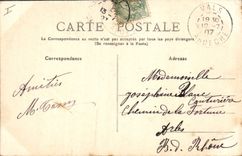 CARTE POSTALE
La Correspondance au recto n'est pas acceptée par tous les pays étrangers.
(Se renseigner à la Poste)
Correspondance
Adresse
VALS
19 30
07
Amitiés
Mademoiselle
Joséphine Blanc
Couturière
Chemin de la Fortune
Arles
B. d. Rhône